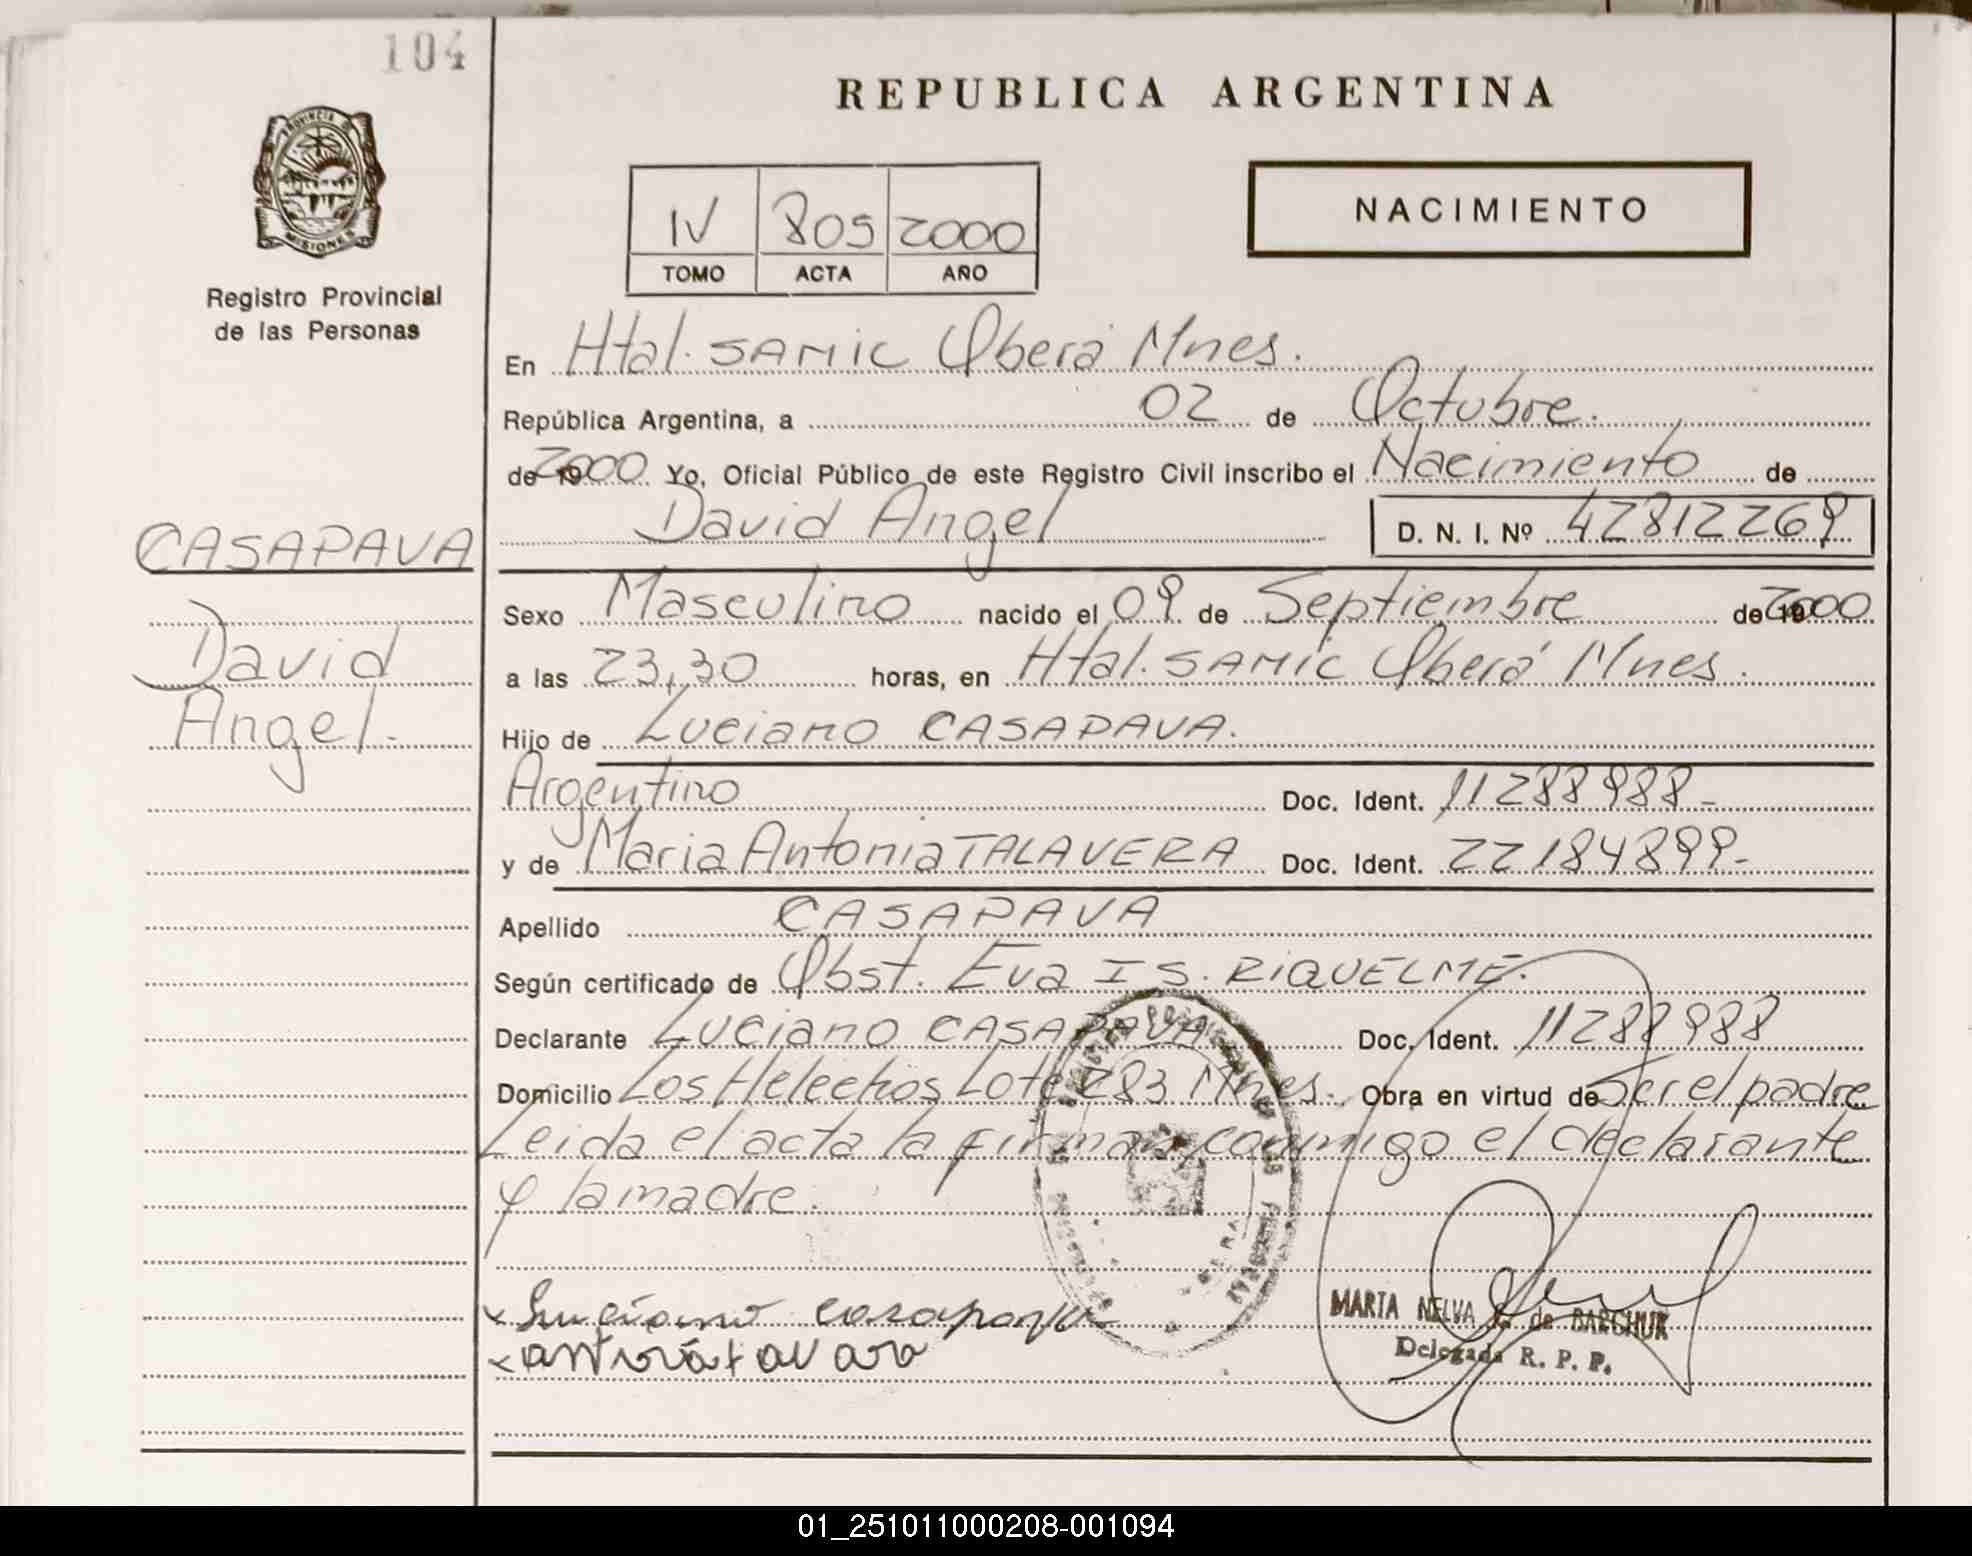 104
REPUBLICA ARGENTINA
PROVINCIA DE
MISIONES
Registro Provincial
de las Personas
IV 805 2000
TOMO ACTA AÑO
NACIMIENTO
En Htal. SAMIC Oberá Mnes.
República Argentina, a 02 de Octubre.
de 2000 Yo, Oficial Público de este Registro Civil inscribo el Nacimiento de
David Angel D. N. I. Nº 42812269
CASAPAVA
David
Angel.
Sexo Masculino nacido el 09 de Septiembre de 2000
a las 23,30 horas, en Htal. SAMIC Oberá Mnes.
Hijo de Luciano CASAPAVA.
Argentino Doc. Ident. 11288988-
y de Maria Antonia TALAVERA Doc. Ident. 22184899-
Apellido CASAPAVA
Según certificado de Obst. Eva IS. RIQUELME.
Declarante Luciano CASAPAVA Doc. Ident. 11288988
Domicilio Los Helechos Lote 283 Mnes. Obra en virtud de Ser el padre
Leida el acta la firman conmigo el declarante
y la madre.
Luciano casapava
MARTA NELVA de BARCHUK
Delegada R. P. P.
01_251011000208-001094